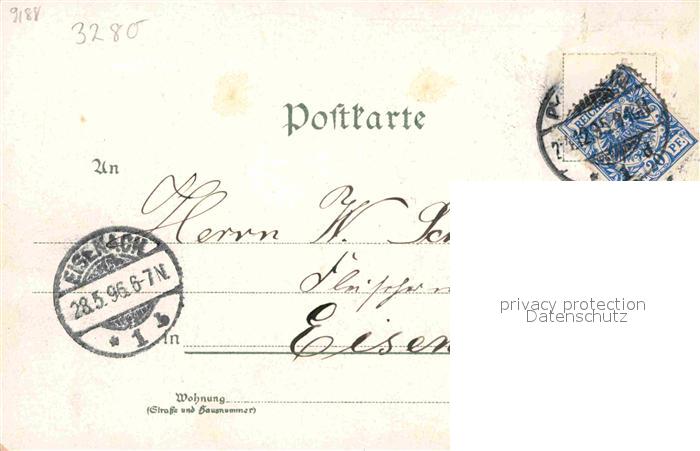 9188
3280
Postkarte
REICHSPOST
20 PF.
An
Herrn W.
EISENACH
28.5.96.6-7N.
* 1 b
in Eisen
Wohnung
(Straße und Hausnummer)
privacy protection
Datenschutz